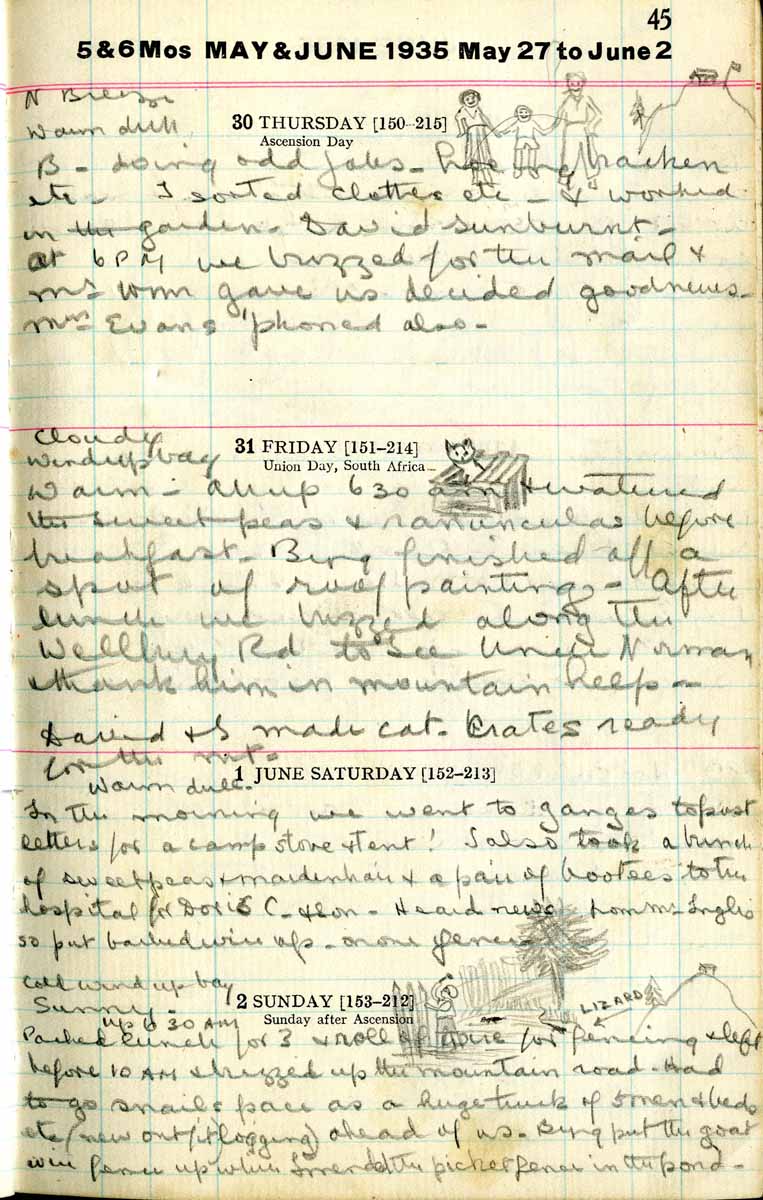 45
5 & 6 Mos MAY & JUNE 1935 May 27 to June 2
N Breeze
Warm dull
30 THURSDAY [150-215]
Ascension Day
B - doing odd jobs - hoeing bracken
etc - I sorted clothes etc - & worked
in the garden - David sunburnt -
at 6 PM we buzzed for the mail &
Mr Wm gave us decided good news -
Mrs Evans 'phoned also -
Cloudy
Wind up bay
31 FRIDAY [151-214]
Union Day, South Africa
Warm - All up 6 30 am & watered
the sweet peas & ranunculas before
breakfast - Bing finished off a
spot of roof painting - After
lunch we buzzed along the
Wellbury Rd to see Uncle Norman
& thank him in mountain help -
David & I made cat - Crates ready
for the
Warm dull -
1 JUNE SATURDAY [152-213]
In the morning we went to Ganges to post
letters for a camp stove & tent! I also took a bunch
of sweetpeas & maidenhair & a pair of bootees to the
hospital for Doris C - & son - Heard news from Mr Inglis
so put barbed wire up - on our fence
Cold wind up bay
Sunny -
2 SUNDAY [153-212]
Sunday after Ascension
LIZARD
up 6 30 AM
Packed lunch for 3 & roll of wire for fencing & left
before 10 AM & buzzed up the mountain road - Had
to go snails pace as a huge truck of 5 men & beds
etc (new outfit logging) ahead of us - Bing put the goat
wire fence up while I mended the picket fence in the pond -